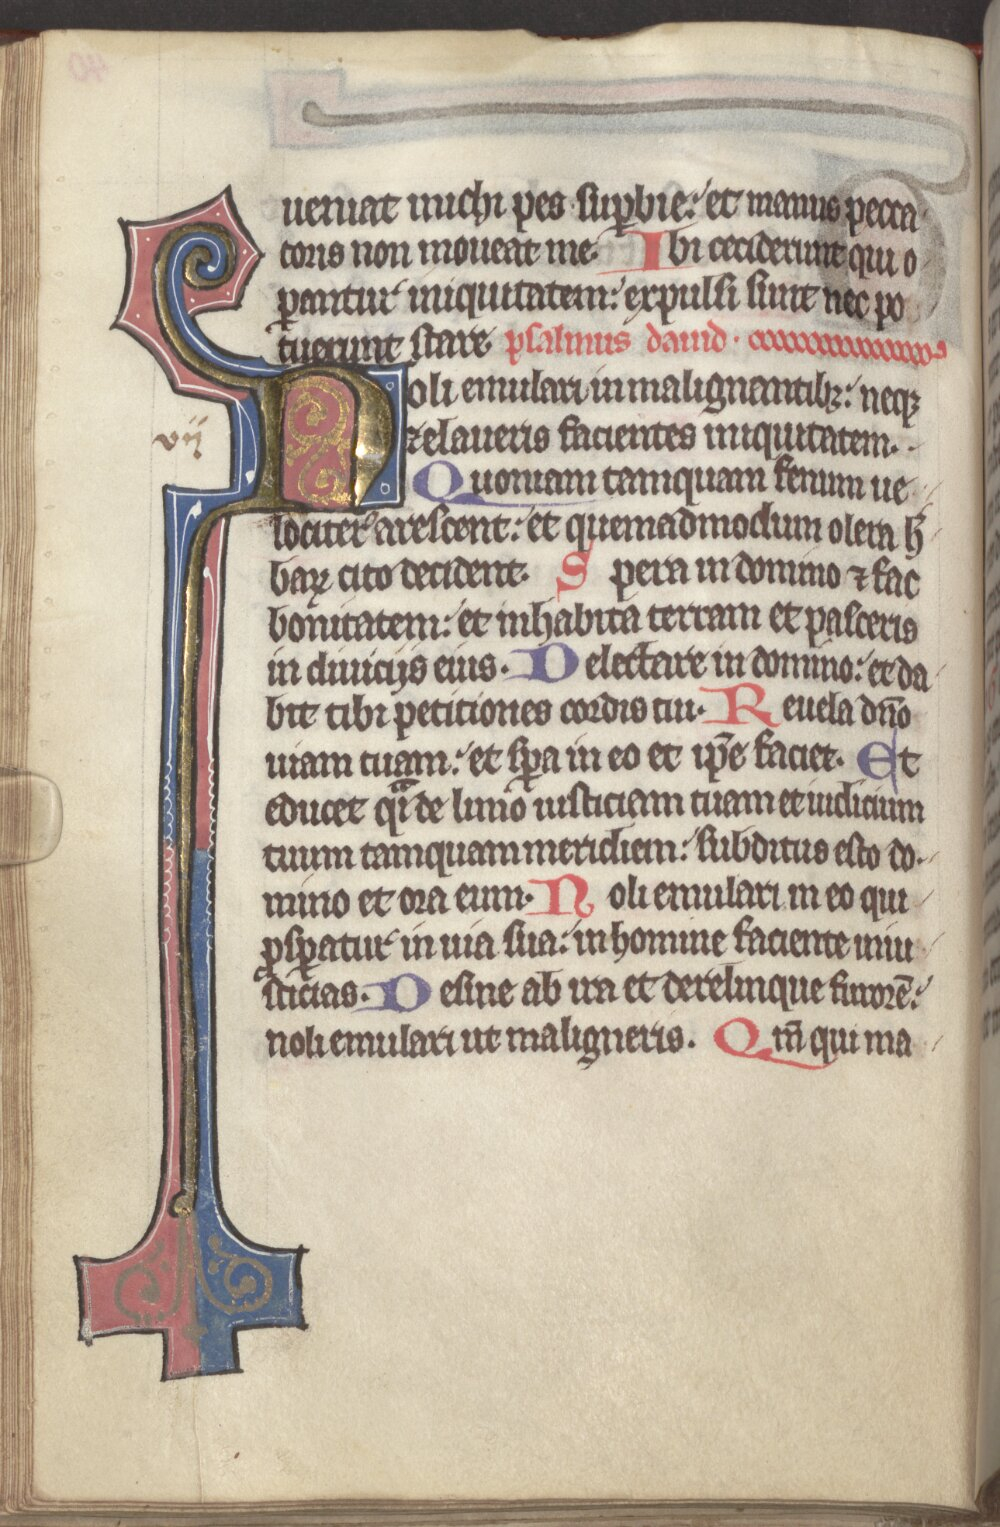 ueniat michi pes supbie: et manus pecca
toris non moueat me. Ibi ceciderunt qui o
pantur iniquitatem: expulsi sunt nec po
tuerunt stare psalmus dauid.
Noli emulari in malignantibꝫ: neqꝫ
vij
zelaueris facientes iniquitatem.
Quoniam tamquam fenum ue
lociter arescent: et quemadmodum olera h̄
baꝝ cito decident. Spera in domino ⁊ fac
bonitatem: et inhabita terram et pasceris
in diuicijs eius. Delectare in domino: et da
bit tibi petitiones cordis tui. Reuela dn̄o
uiam tuam: et sp̱a in eo et ip̄e faciet. Et
educet q̄i de limō iusticiam tuam et iudicium
tuum tamquam meridiem: subditus esto do
mino et ora eum. Noli emulari in eo qui
ꝓspatur in uia sua: in homine faciente iniu
sticias. Desine ab ira et derelinque furorē:
noli emulari ut maligneris. Qm̄ qui ma